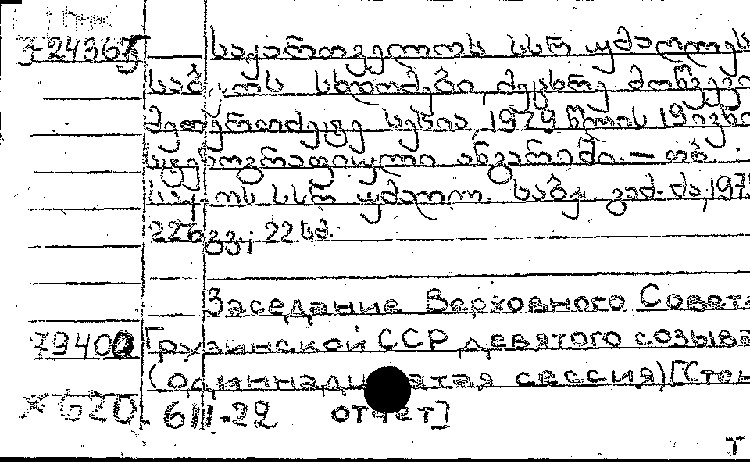 საქართველოს სსრ უმაღლეს
საბ-ოს სხდომები მეცხრე მოწვევი
მეთერთმეტე სესია 1979 წლის 19 ივნი
სტენოგრაფიული ანგარიში. — თბ.
საქ-ოს სსრ უმაღლ. საბჭ. გამ-ბა, 197
226 გვ; 22 სმ.
Заседание Верховного Совета
79400 Грузинской ССР девятого созыва
(одиннадцатая сессия) [Стен
620. 611.-22 отчет]
Т